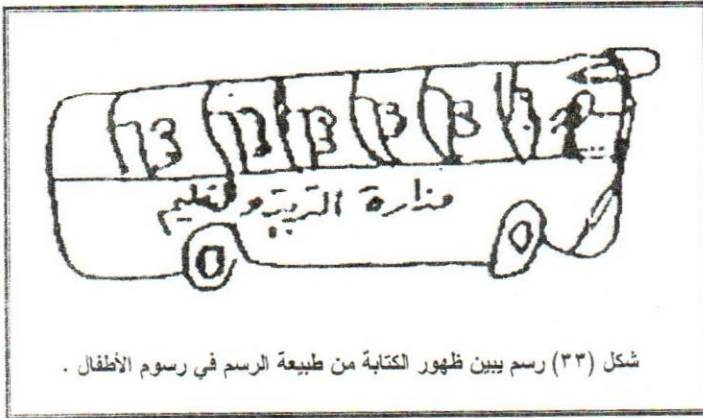 وزارة التربية والتعليم
شكل (٣٣) رسم يبين ظهور الكتابة من طبيعة الرسم في رسوم الأطفال .